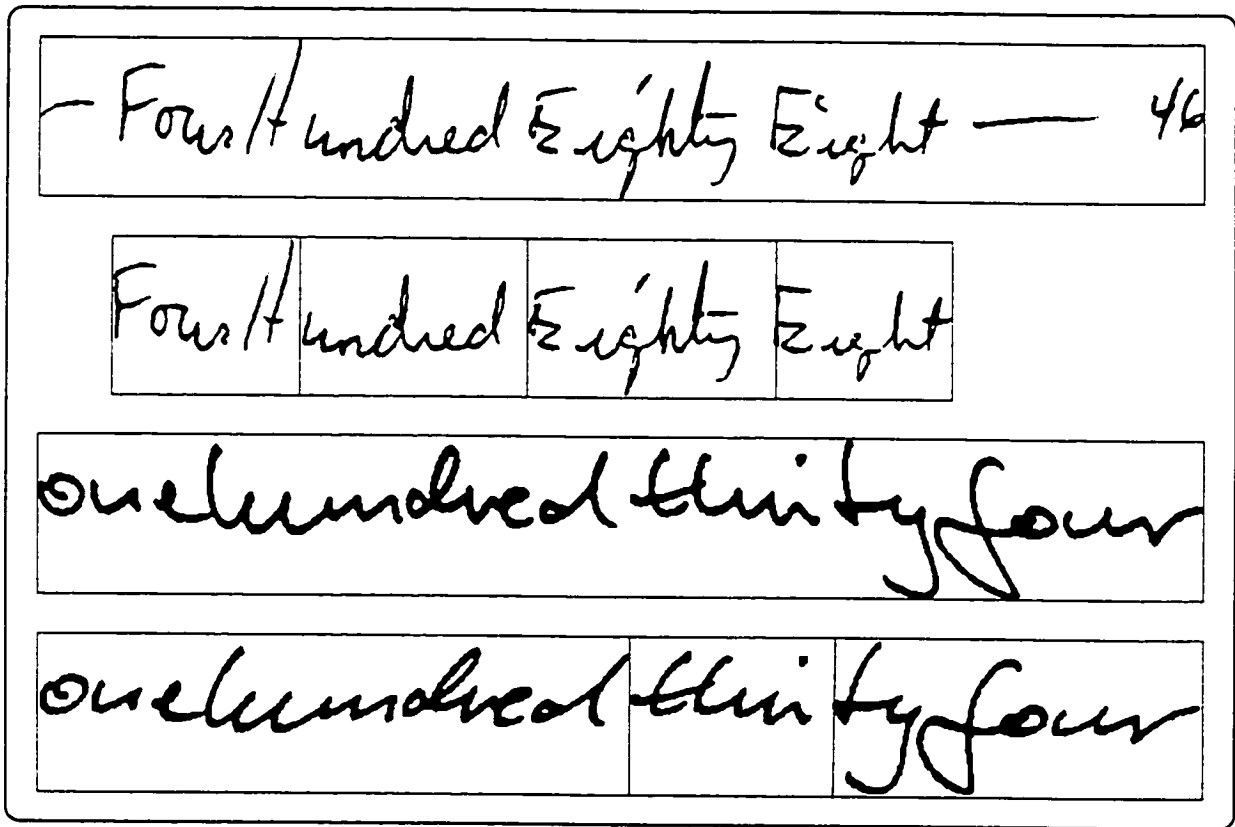 — Four Hundred Eighty Eight — 46
Four Hundred Eighty Eight
one hundred thirty four
one hundred thirty four